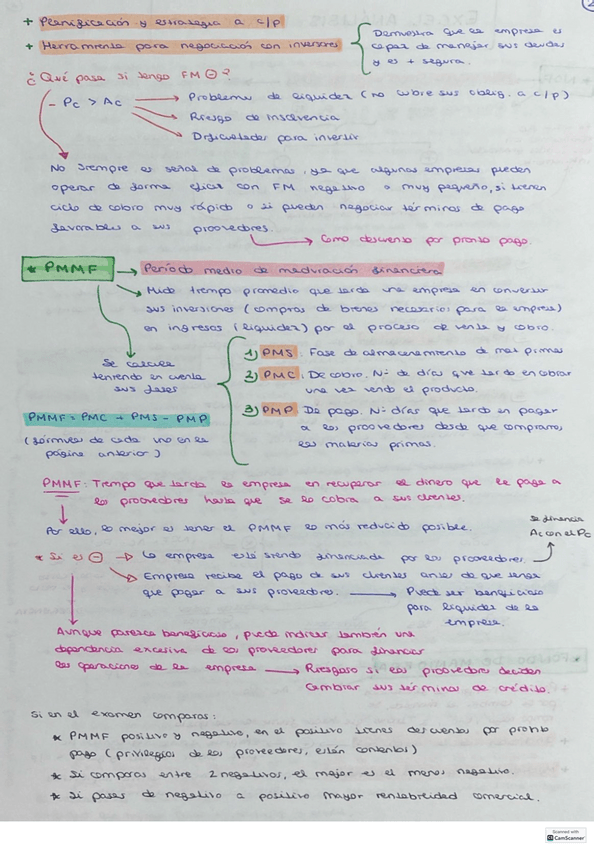 + Planificación y estrategia a c/p
+ Herramienta para negociación con inversores
Demuestra que la empresa es
capaz de manejar sus deudas
y es + segura.
¿Qué pasa si tengo FM ⊖?
- Pc > Ac → Problemas de liquidez (no cubre sus oblig. a c/p)
→ Riesgo de insolvencia
→ Dificultades para invertir
No siempre es señal de problemas, ya que algunas empresas pueden
operar de forma eficaz con FM negativo o muy pequeño, si tienen
ciclo de cobro muy rápido o si pueden negociar términos de pago
favorables a sus proovedores.
→ Como descuento por pronto pago.
* PMMF → Período medio de maduración financiera
→ Mide tiempo promedio que tarda una empresa en convertir
sus inversiones (compras de bienes necesarios para la empresa)
en ingresos (liquidez) por el proceso de venta y cobro.
Se calcula
teniendo en cuenta
sus fases
1) PMS. Fase de almacenamiento de mat primas
2) PMC. De cobro. Nº de días que tardo en cobrar
una vez vendo el producto.
3) PMP De pago. Nº días que tardo en pagar
a los proovedores desde que compramos
las materias primas.
PMMF = PMC + PMS - PMP
(fórmulas de cada uno en la
página anterior)
PMMF: Tiempo que tarda la empresa en recuperar el dinero que le paga a
los proovedores hasta que se lo cobra a sus clientes.
Por ello, lo mejor es tener el PMMF lo más reducido posible.
Se financia
Ac con el Pc
* Si es ⊖ → La empresa está siendo financiada por los proovedores.
→ Empresa recibe el pago de sus clientes antes de que tenga
que pagar a sus proveedores. → Puede ser beneficioso
para liquidez de la
empresa.
Aunque parezca beneficioso, puede indicar también una
dependencia excesiva de los proveedores para financiar
las operaciones de la empresa → Riesgoso si los proovedores deciden
cambiar sus términos de crédito.
Si en el examen comparas:
* PMMF positivo y negativo, en el positivo tienes descuentos por pronto
pago (privilegios de los proveedores, están contentos)
* Si comparas entre 2 negativos, el mejor es el menos negativo.
* Si pasas de negativo a positivo mayor rentabilidad comercial.
Scanned with
CS CamScanner